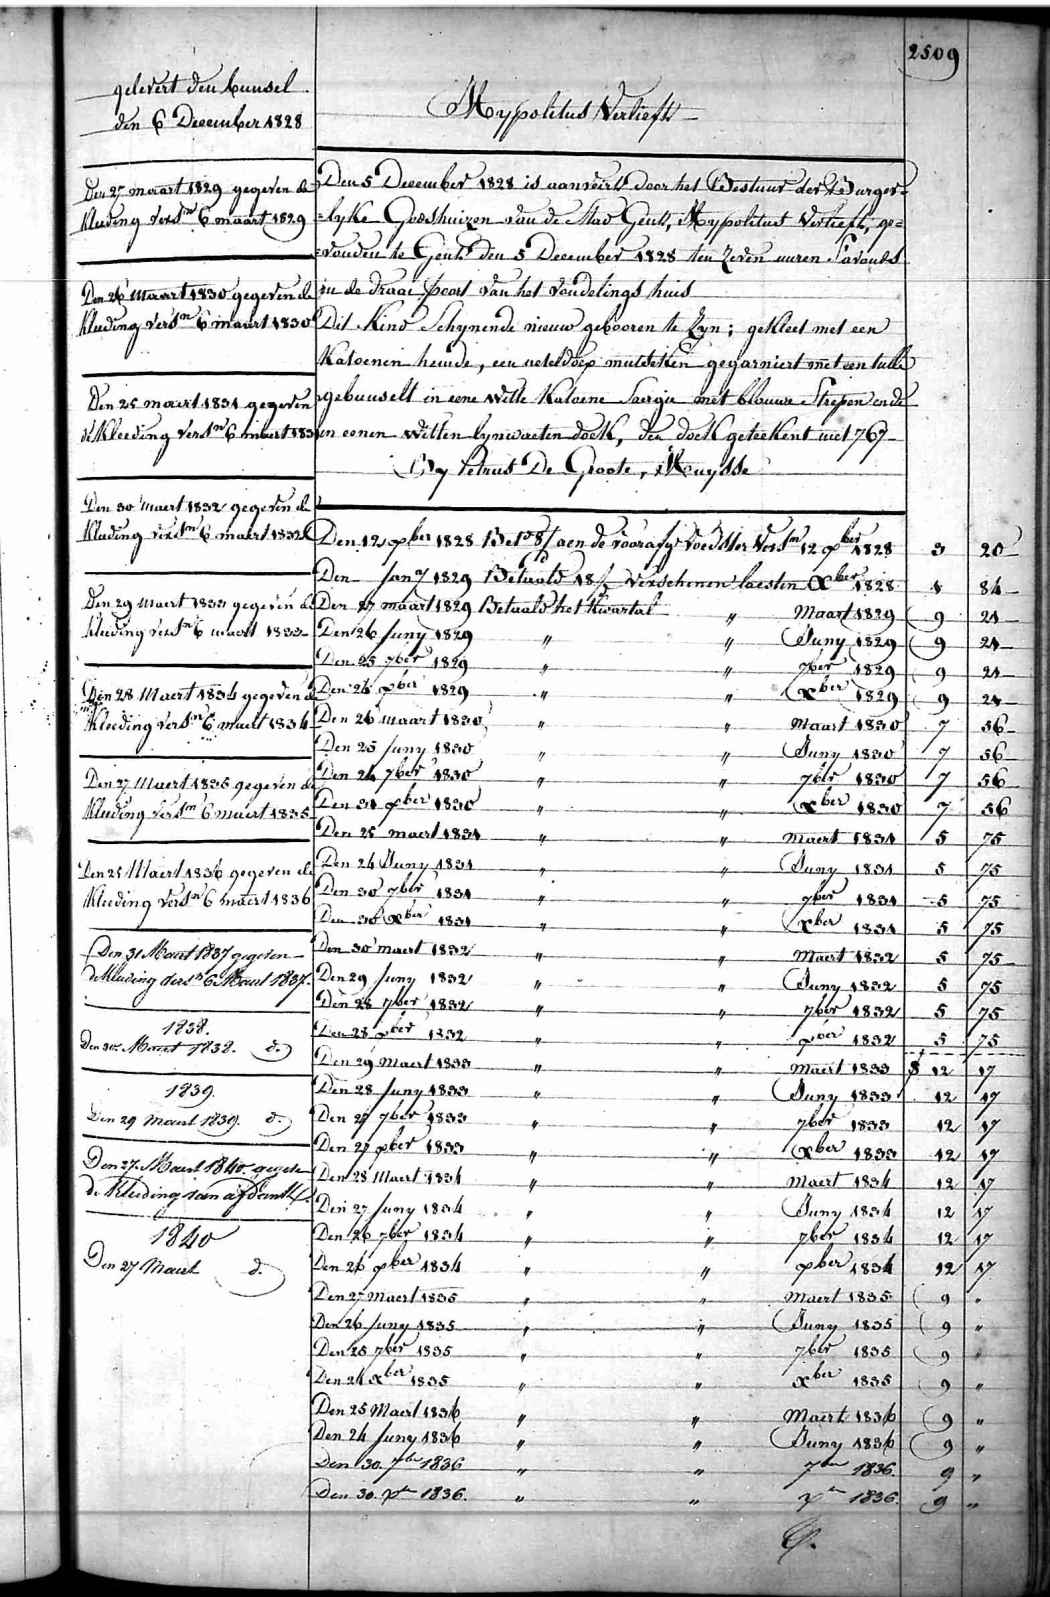 2509
gelevert den bunsel
den 6 December 1828
Den 27 maart 1829 gegeven de
Kleeding versn 6 maart 1829
Den 26 Maart 1830 gegeven de
Kleeding versn 6 maart 1830
Den 25 maert 1831 gegeven
de Kleeding versn 6 maert 183
Den 30 maert 1832 gegeven de
Kleeding versn 6 maert 1832
Den 29 Maert 1833 gegeven de
Kleeding versn 6 maert 1833
Den 28 Maert 1834 gegeven de
Kleeding versn 6 maert 1834
Den 27 Maert 1835 gegeven de
Kleeding versn 6 maert 1835
Den 25 Maert 1836 gegeven de
Kleeding versn 6 maert 1836
Den 31 Maert 1837 gegeven
de Kleeding versn 6 Maert 1837.
1838.
Den 30 Maert 1838. d.
1839.
Den 29 Maert 1839. d.
Den 27 Maert 1840. gegeven
de Kleeding van
1840
Den 27 Maert d.
Hypolitus Verlieft
Den 5 December 1828 is aanveird door het Bestuur der Burger=
=lyke Godshuizen van de Stad Gent, Hypolitus Verlieft, ge=
=vonden te Gent den 5 December 1828 ten Zeven uuren savonds
in de draai poort van het vondelings huis
Dit Kind Schynende nieuw gebooren te Zyn; gekleet met een
Katoenen hemde, een neteldoek mutseken gegarniert met een tulle
gebunselt in eene witte Katoene Saergie met blauwe Strepen ende
in eenen witten lynwaeten doek, den doek geteekent met 767
By Petrus De Groote, Kuysse
Den 12 xber 1828 aen de voedster versn 12 xber 1828 3 20
Den Jany 1829 Betaald 18 verschenen laesten Xber 1828 1 84
Den 27 maart 1829 Betaald het Kwartal " Maart 1829 9 21
Den 26 Juny 1829 " " Juny 1829 9 21
Den 25 7ber 1829 " " 7ber 1829 9 21
Den 26 xber 1829 " " Xber 1829 9 21
Den 26 maart 1830 " " Maart 1830 7 56
Den 25 Juny 1830 " " Juny 1830 7 56
Den 24 7ber 1830 " " 7ber 1830 7 56
Den 31 xber 1830 " " Xber 1830 7 56
Den 25 maert 1831 " " Maert 1831 5 75
Den 24 Juny 1831 " " Juny 1831 5 75
Den 30 7ber 1831 " " 7ber 1831 5 75
Den 30 Xber 1831 " " Xber 1831 5 75
Den 30 maert 1832 " " Maert 1832 5 75
Den 29 Juny 1832 " " Juny 1832 5 75
Den 28 7ber 1832 " " 7ber 1832 5 75
Den 28 xber 1832 " " xber 1832 5 75
Den 29 Maert 1833 " " Maert 1833 12 17
Den 28 Juny 1833 " " Juny 1833 12 17
Den 27 7ber 1833 " " 7ber 1833 12 17
Den 27 xber 1833 " " Xber 1833 12 17
Den 28 Maert 1834 " " Maert 1834 12 17
Den 27 Juny 1834 " " Juny 1834 12 17
Den 26 7ber 1834 " " 7ber 1834 12 17
Den 26 xber 1834 " " xber 1834 12 17
Den 27 Maert 1835 " " Maert 1835 9 "
Den 26 Juny 1835 " " Juny 1835 9 "
Den 25 7ber 1835 " " 7ber 1835 9 "
Den 24 Xber 1835 " " Xber 1835 9 "
Den 25 Maert 1836 " " Maert 1836 9 "
Den 24 Juny 1836 " " Juny 1836 9 "
Den 30. 7ber 1836 " " 7ber 1836. 9 "
Den 30. xber 1836. " " xr 1836. 9 "